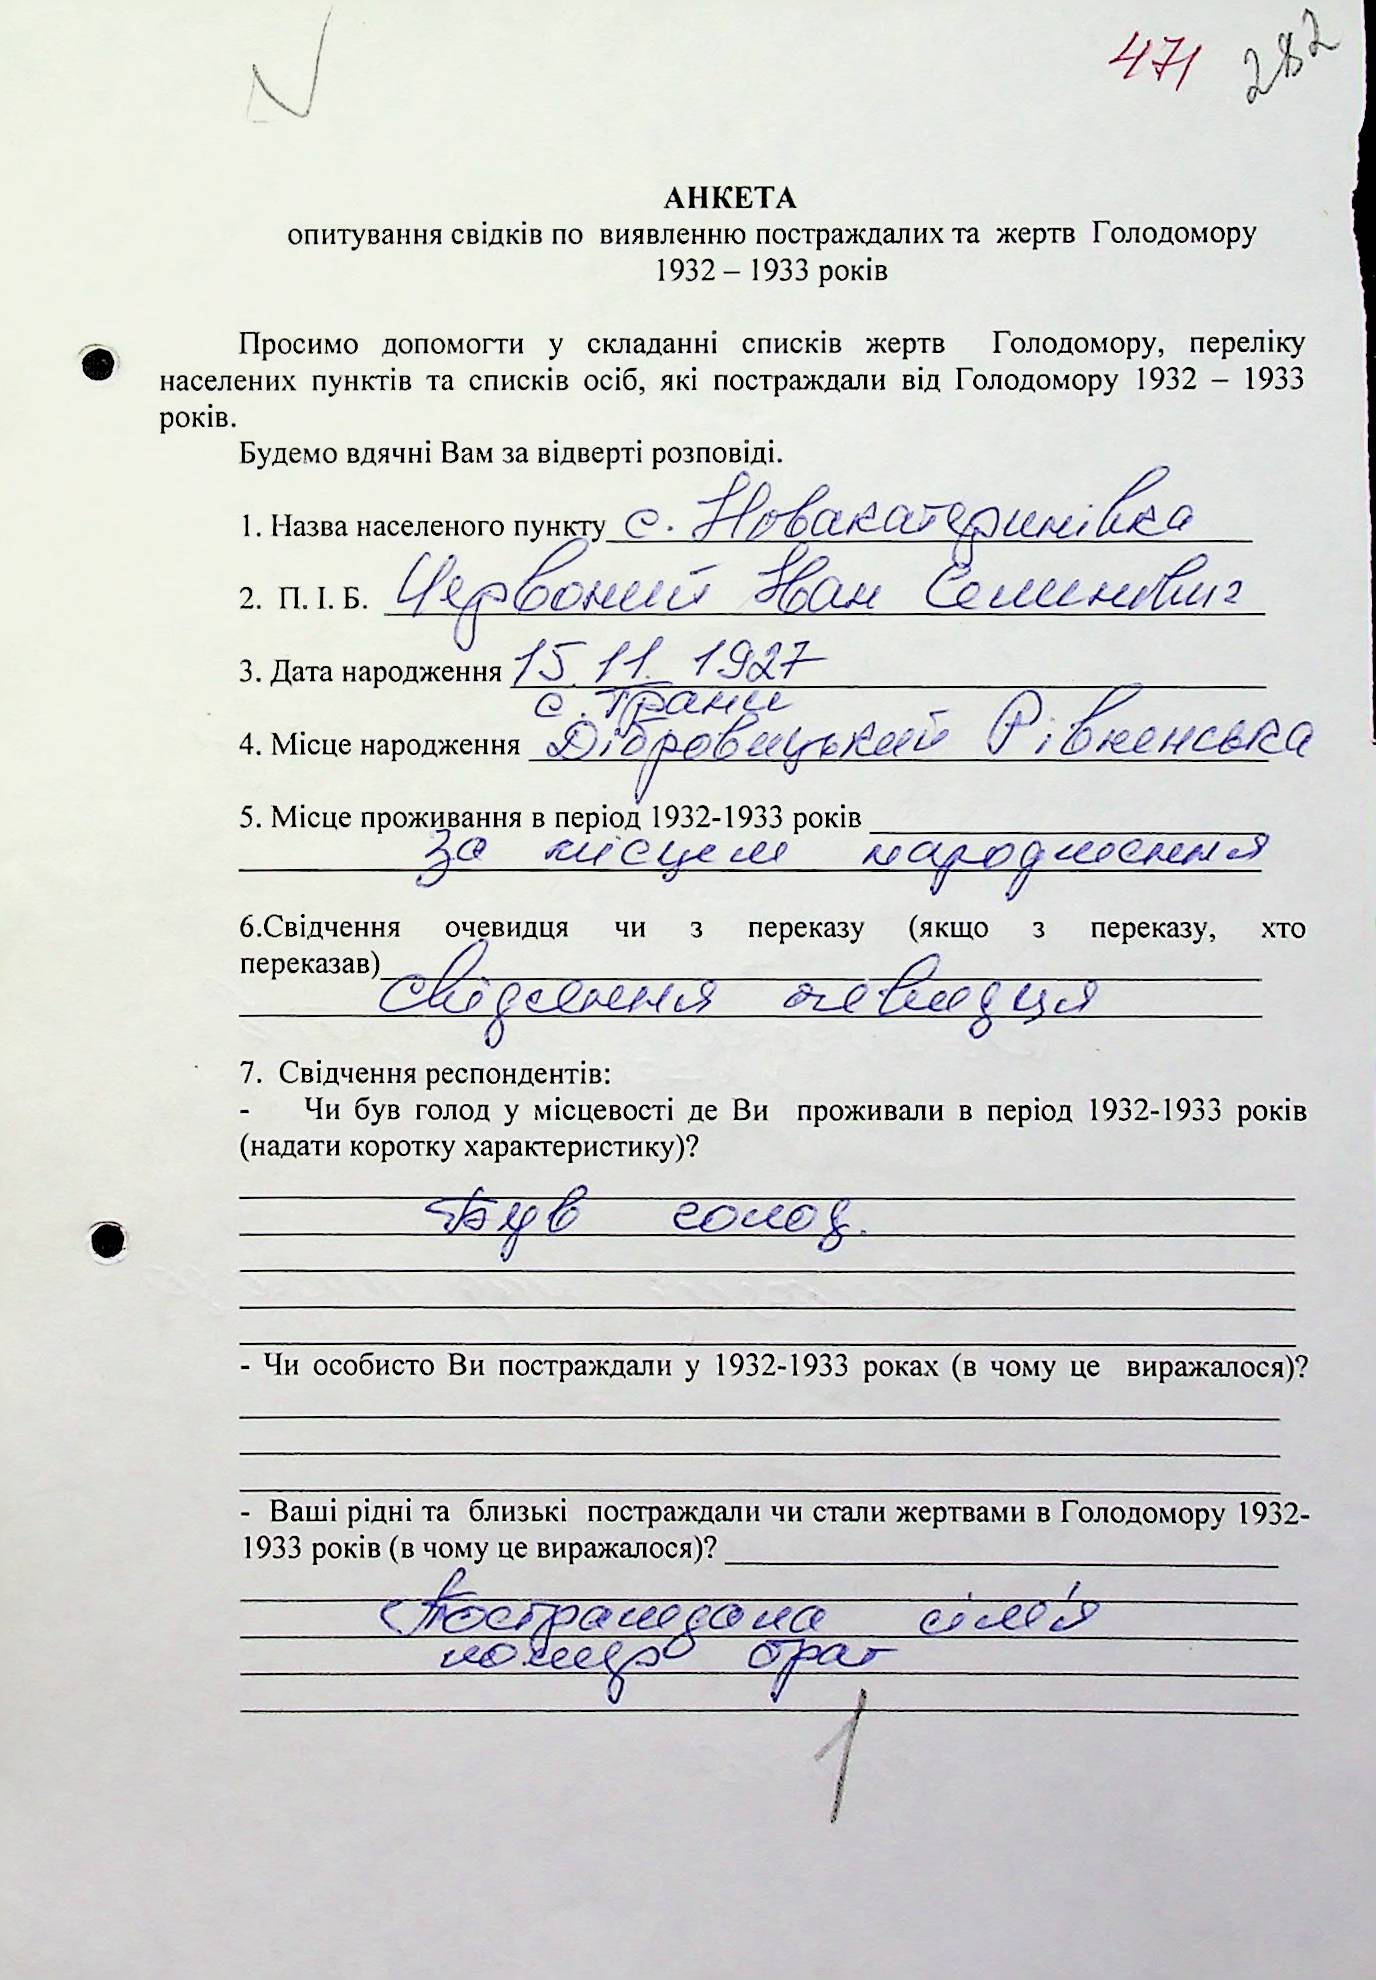 471 282
АНКЕТА
опитування свідків по виявленню постраждалих та жертв Голодомору
1932 – 1933 років
Просимо допомогти у складанні списків жертв Голодомору, переліку
населених пунктів та списків осіб, які постраждали від Голодомору 1932 – 1933
років.
Будемо вдячні Вам за відверті розповіді.
1. Назва населеного пункту с. Новакатеринівка
2. П. І. Б. Червоний Іван Семинович
3. Дата народження 15.11.1927
с. Грани
4. Місце народження Дібровицький Рівненська
5. Місце проживання в період 1932-1933 років
за місцем народження
6.Свідчення очевидця чи з переказу (якщо з переказу, хто
переказав)
свідчення очевидця
7. Свідчення респондентів:
- Чи був голод у місцевості де Ви проживали в період 1932-1933 років
(надати коротку характеристику)?
Був голод.
- Чи особисто Ви постраждали у 1932-1933 роках (в чому це виражалося)?
- Ваші рідні та близькі постраждали чи стали жертвами в Голодомору 1932-
1933 років (в чому це виражалося)?
Постраждала сім'я
брат
1